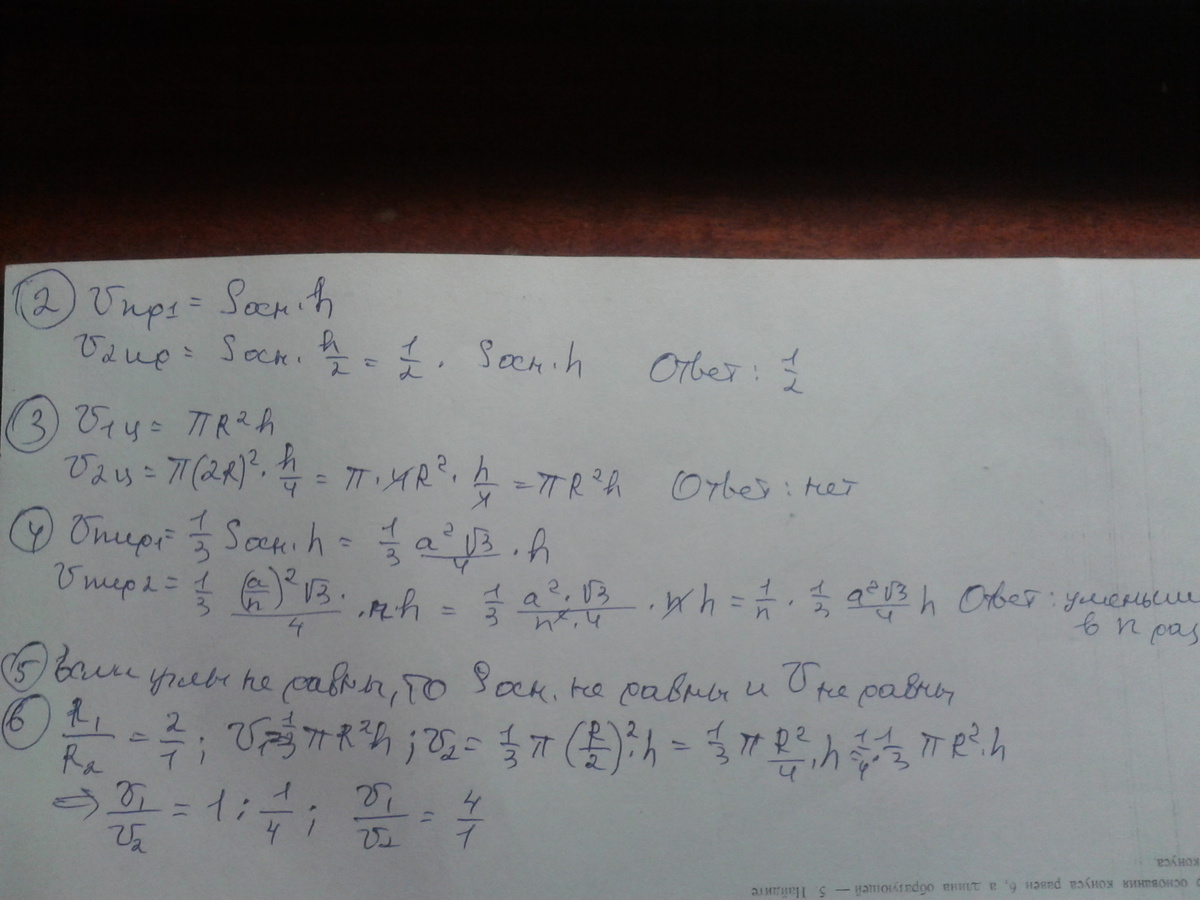 2 Vпр1 = Sосн.h
V2пр = Sосн. h/2 = 1/2 · Sосн.h Ответ: 1/2
3 V1ц = πR²h
V2ц = π(2R)² · h/4 = π·4R² · h/4 = πR²h Ответ: нет
4 Vпир1 = 1/3 Sосн.h = 1/3 a²√3/4 · h
Vпир2 = 1/3 (a/n)²√3/4 · nh = 1/3 a²·√3/n²·4 · nh = 1/n · 1/3 a²√3/4 h Ответ: уменьши
в n раз
5 Если углы не равны, то Sосн. не равны и V не равны
6 R₁/R₂ = 2/1; V₁=1/3 πR²h; V₂ = 1/3 π(R/2)²·h = 1/3 π R²/4 · h = 1/4 · 1/3 πR²·h
⇒ V₁/V₂ = 1 : 1/4; V₁/V₂ = 4/1
основания конуса равен 6, а длина образующей — 5. Найдите
конуса